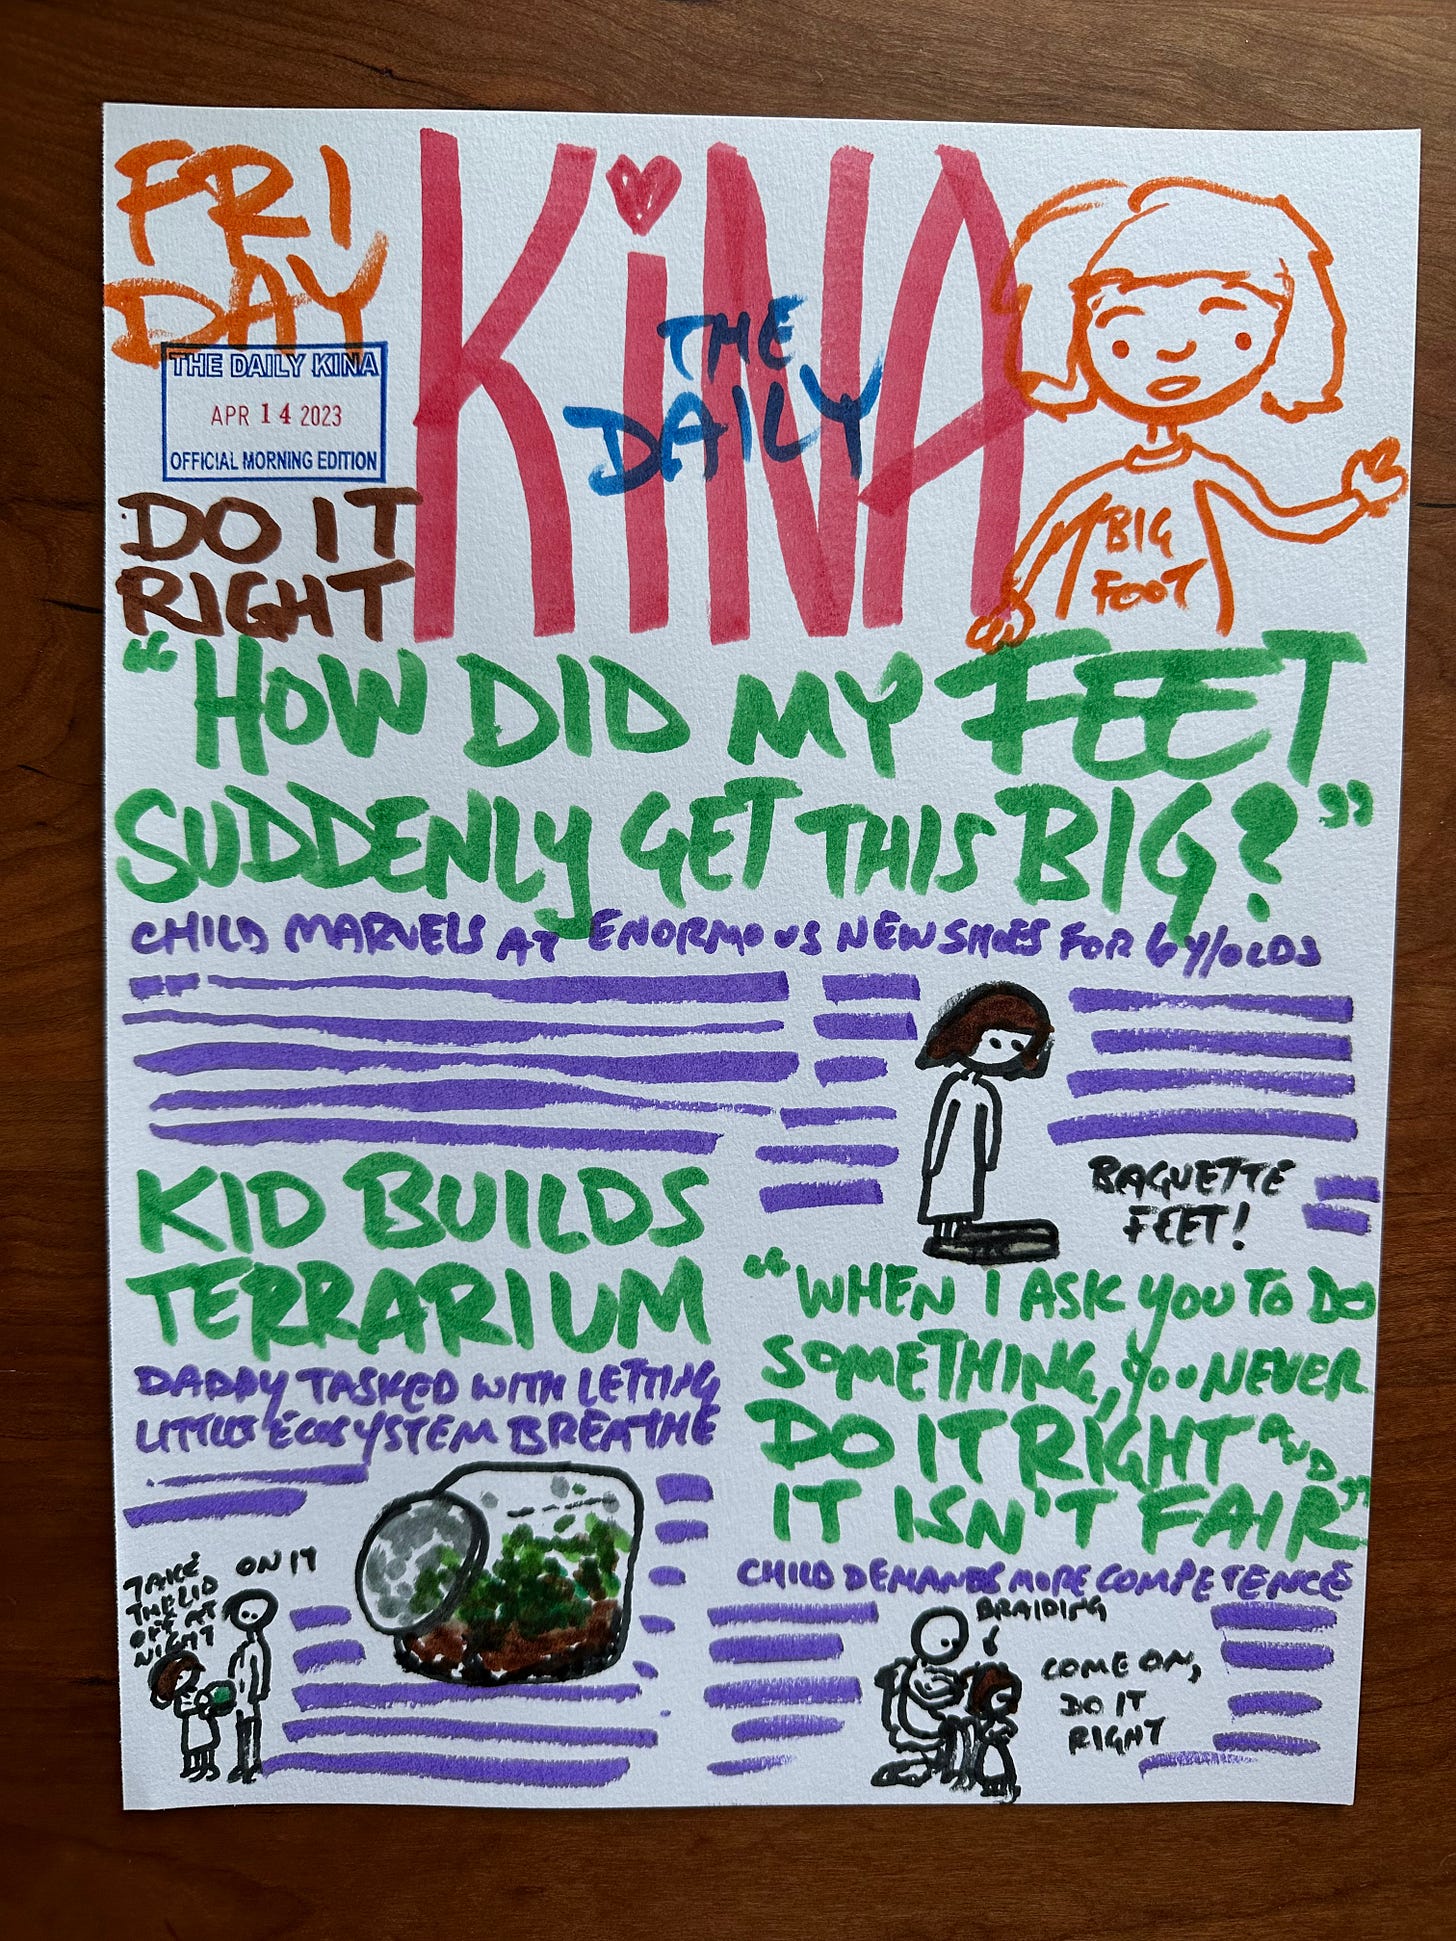 FRI
DAY
THE DAILY KINA
APR 14 2023
OFFICIAL MORNING EDITION
DO IT
RIGHT
KiNA
THE
DAILY
BIG
FOOT
"HOW DID MY FEET
SUDDENLY GET THIS BIG?"
CHILD MARVELS AT ENORMOUS NEW SHOES FOR 6 Y/OLDS
BAGUETTE
FEET!
KID BUILDS
TERRARIUM
DADDY TASKED WITH LETTING
LITTLE ECOSYSTEM BREATHE
TAKE
THE LID
OFF AT
NIGHT
ON IT
"WHEN I ASK YOU TO DO
SOMETHING, YOU NEVER
DO IT RIGHT AND
IT ISN'T FAIR"
CHILD DEMANDS MORE COMPETENCE
BRAIDING
COME ON,
DO IT
RIGHT